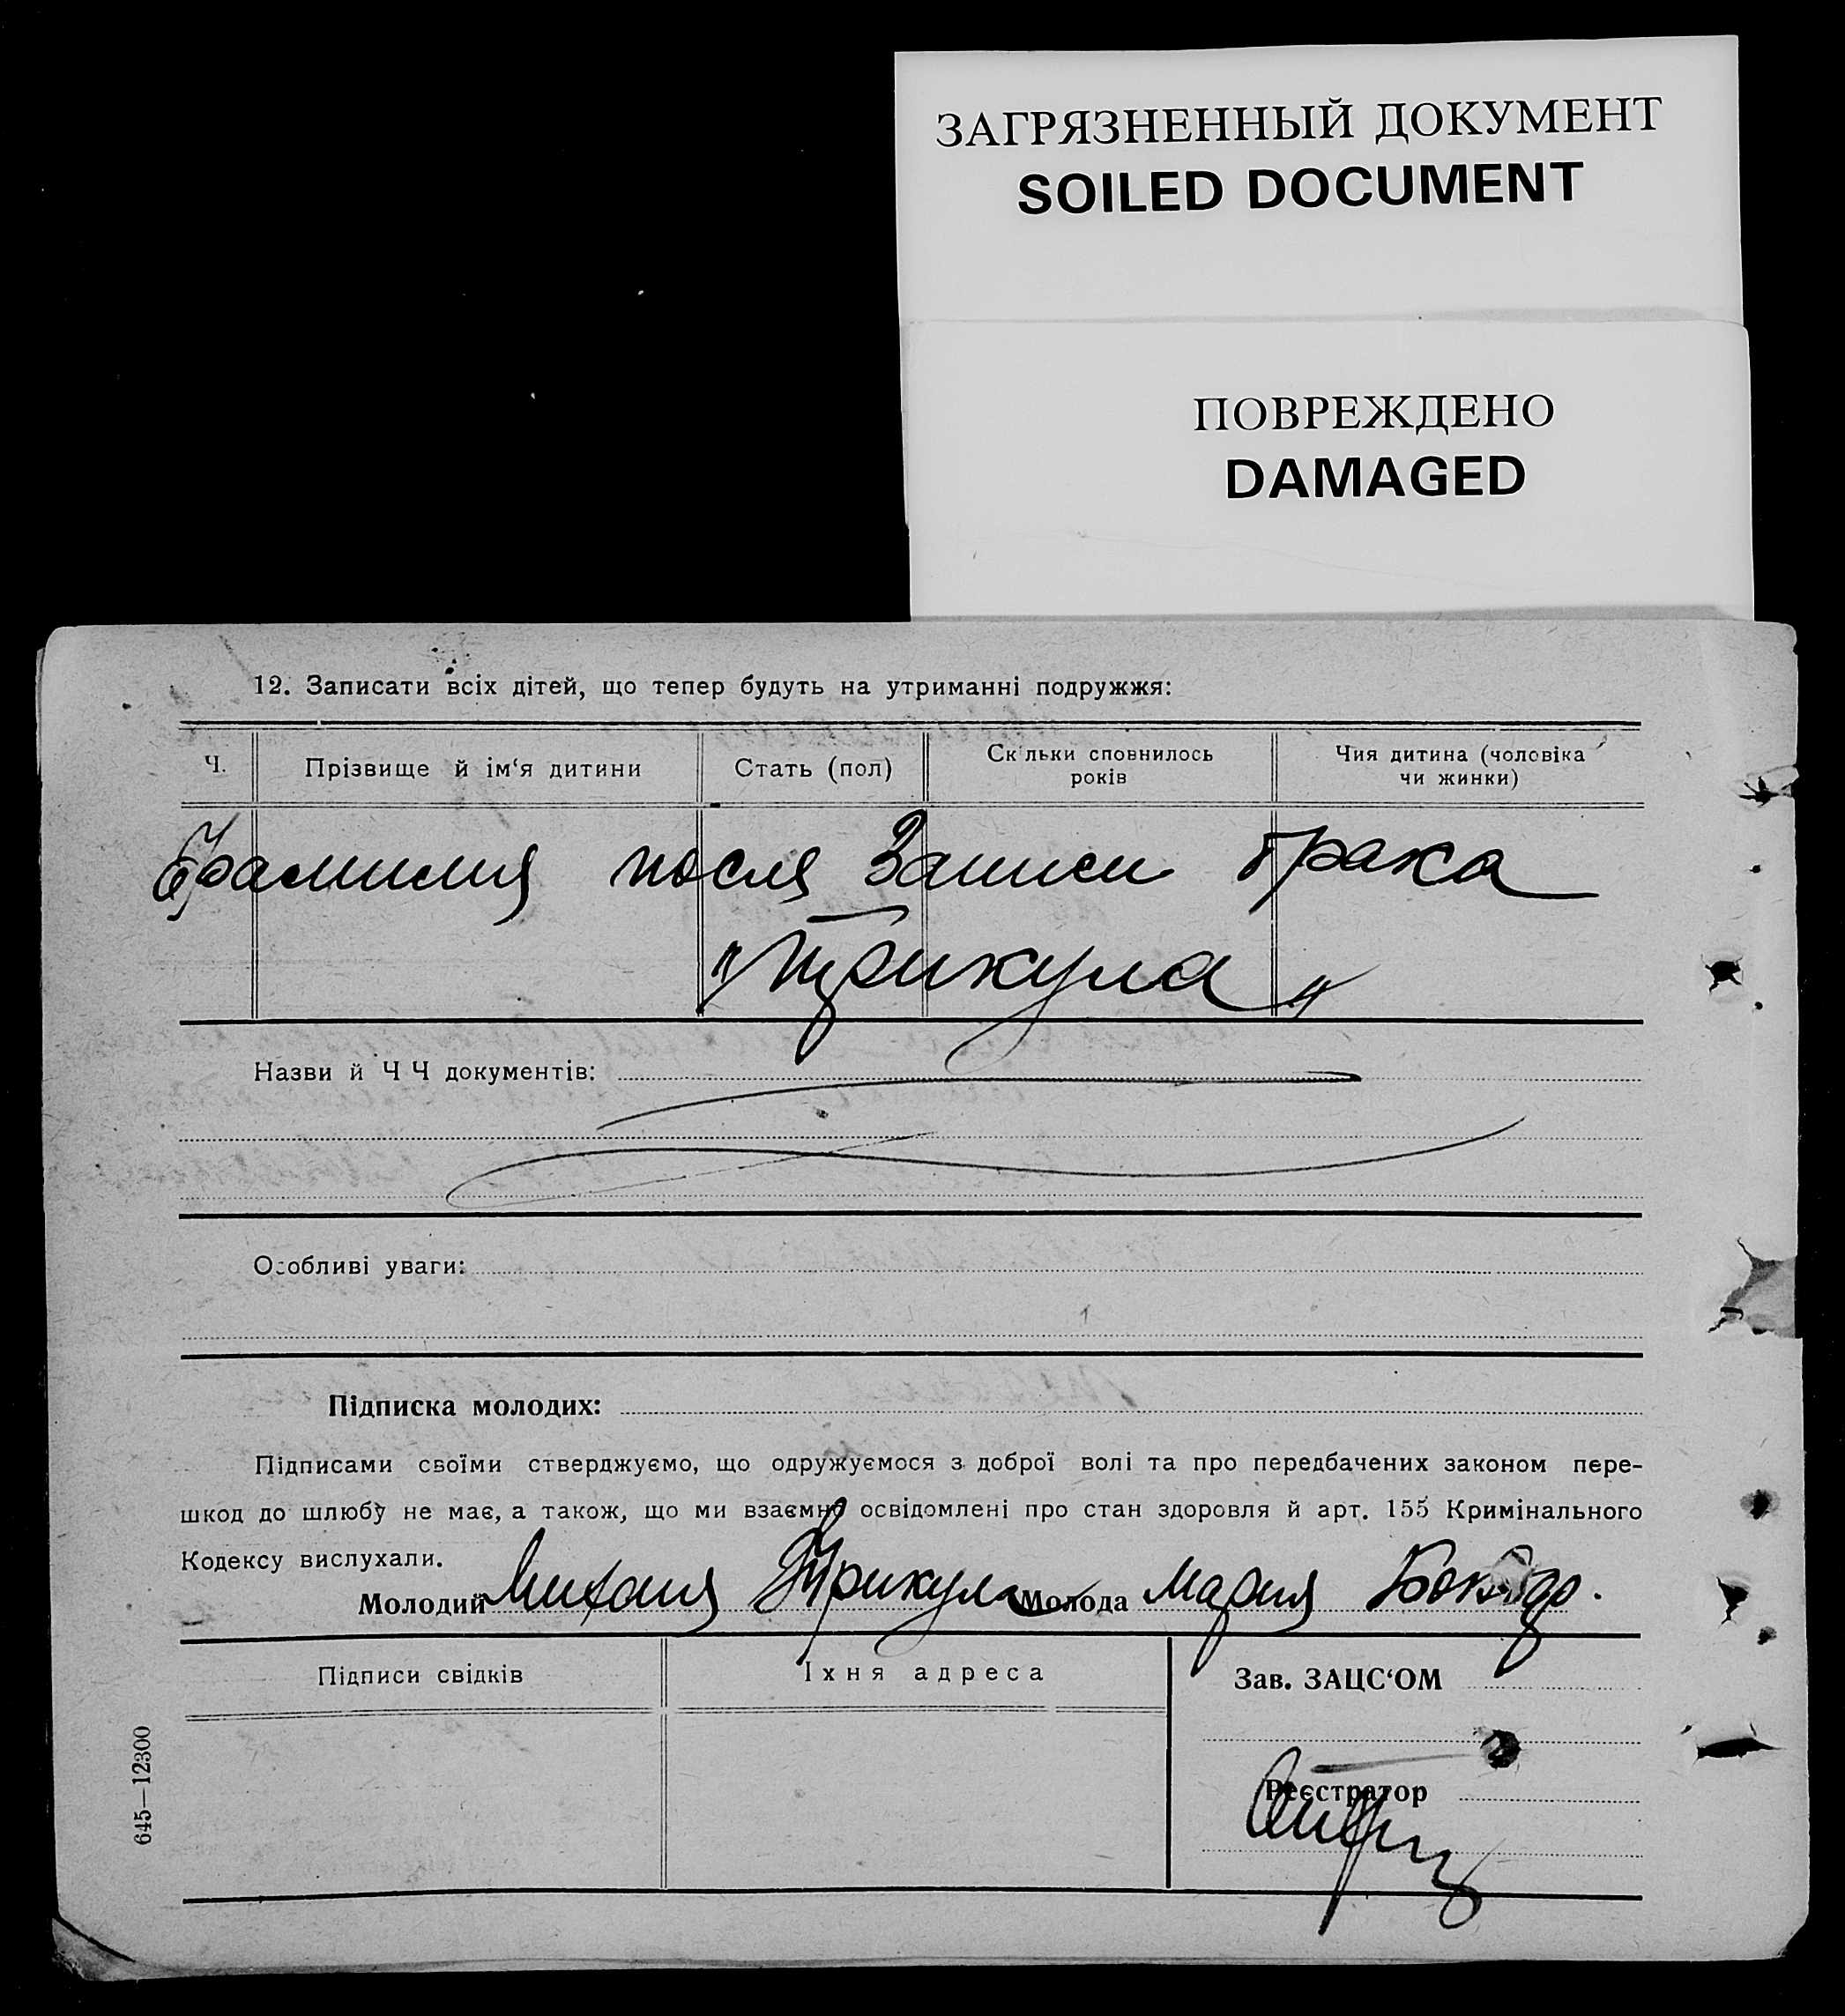 ЗАГРЯЗНЕННЫЙ ДОКУМЕНТ
SOILED DOCUMENT
ПОВРЕЖДЕНО
DAMAGED
12. Записати всіх дітей, що тепер будуть на утриманні подружжя:
Ч. Прізвище й ім‘я дитини Стать (пол) Скільки сповнилось років Чия дитина (чоловіка чи жинки)
Фамилия после Записи брака
"Трикула"
Назви й Ч Ч документів:
Особливі уваги:
Підписка молодих:
Підписами своїми стверджуємо, що одружуємося з доброї волі та про передбачених законом пере-
шкод до шлюбу не має, а також, що ми взаємно освідомлені про стан здоровля й арт. 155 Кримінального
Кодексу вислухали.
Молодий Михаил Трикула Молода Мария
Підписи свідків Їхня адреса Зав. ЗАЦС‘ОМ
Реєстратор
645—12300